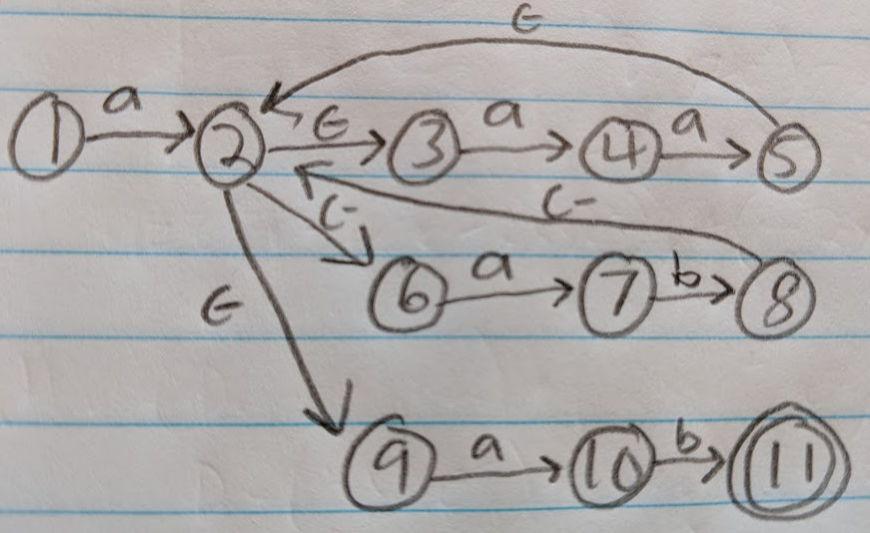 ϵ
1 a 2 ϵ 3 a 4 a 5
ϵ ϵ
6 a 7 b 8
ϵ
9 a 10 b 11